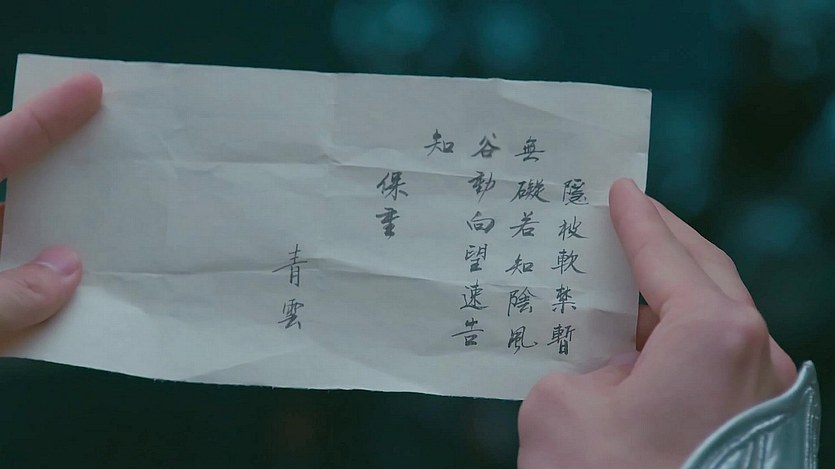 隱被軟禁暫
無礙若知陰風
谷動向望速告
知
保重
青雲